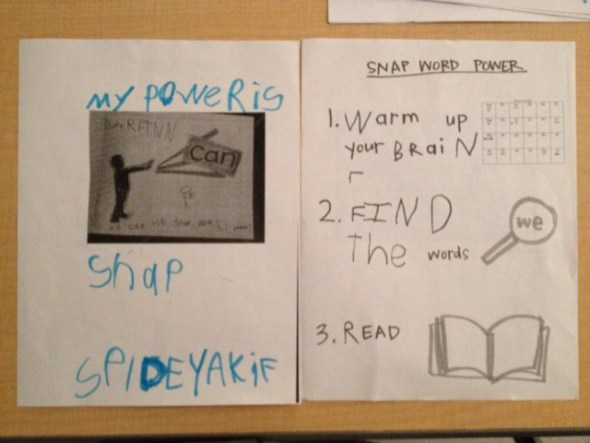 MY POWeR is
Can
Shap
SPIDEYAKiF
SNAP WORD POWER
1. Warm up
your BRaiN
r
2. FIND
The words
we
3. READ